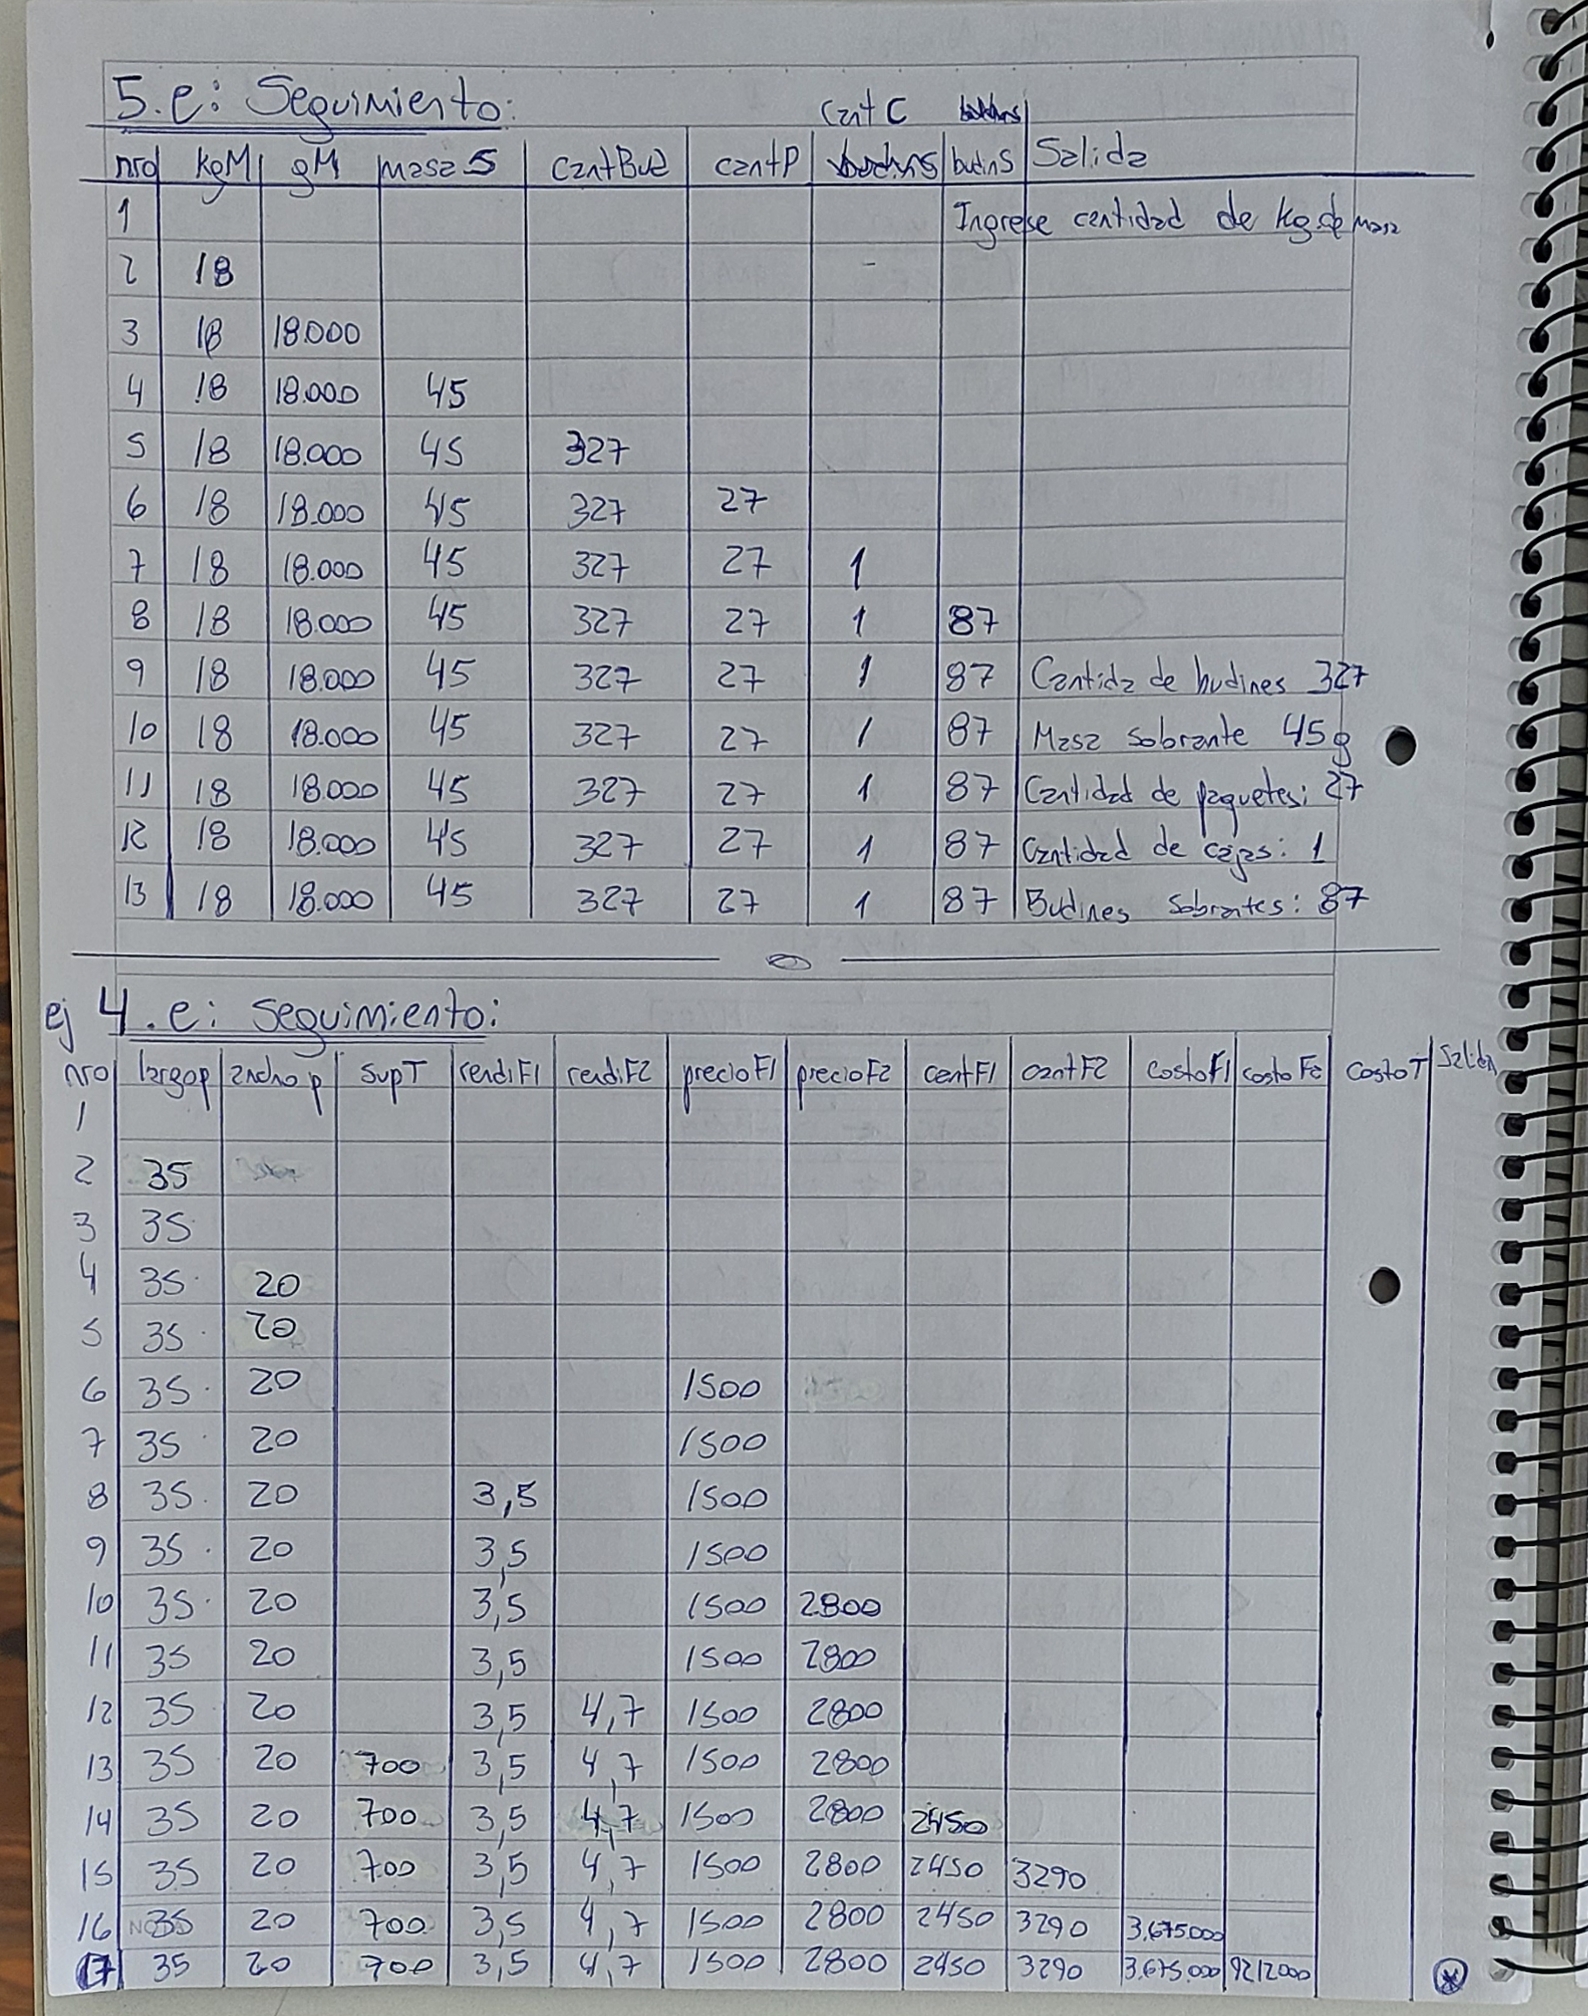 5.e: Seguimiento:
cantC
nro kgM gM masaS cantBud cantP budinS Salida
1 Ingrese cantidad de kg de masa
2 18 -
3 18 18.000
4 18 18.000 45
5 18 18.000 45 327
6 18 18.000 45 327 27
7 18 18.000 45 327 27 1
8 18 18.000 45 327 27 1 87
9 18 18.000 45 327 27 1 87 Cantida de budines 327
10 18 18.000 45 327 27 1 87 Masa sobrante 45g
11 18 18.000 45 327 27 1 87 Cantidad de paquetes: 27
12 18 18.000 45 327 27 1 87 Cantidad de cajas: 1
13 18 18.000 45 327 27 1 87 Budines Sobrantes: 87
ej 4.e: seguimiento:
nro largop anchop supT rendiF1 rendiF2 precioF1 precioF2 cantF1 cantF2 costoF1 costoF2 costoT Salida
1
2 35
3 35
4 35 20
5 35 20
6 35 20 1500
7 35 20 1500
8 35 20 3,5 1500
9 35 20 3,5 1500
10 35 20 3,5 1500 2800
11 35 20 3,5 1500 2800
12 35 20 3,5 4,7 1500 2800
13 35 20 700 3,5 4,7 1500 2800
14 35 20 700 3,5 4,7 1500 2800 2450
15 35 20 700 3,5 4,7 1500 2800 2450 3290
16 35 20 700 3,5 4,7 1500 2800 2450 3290 3.675.000
17 35 20 700 3,5 4,7 1500 2800 2450 3290 3.675.000 9212000